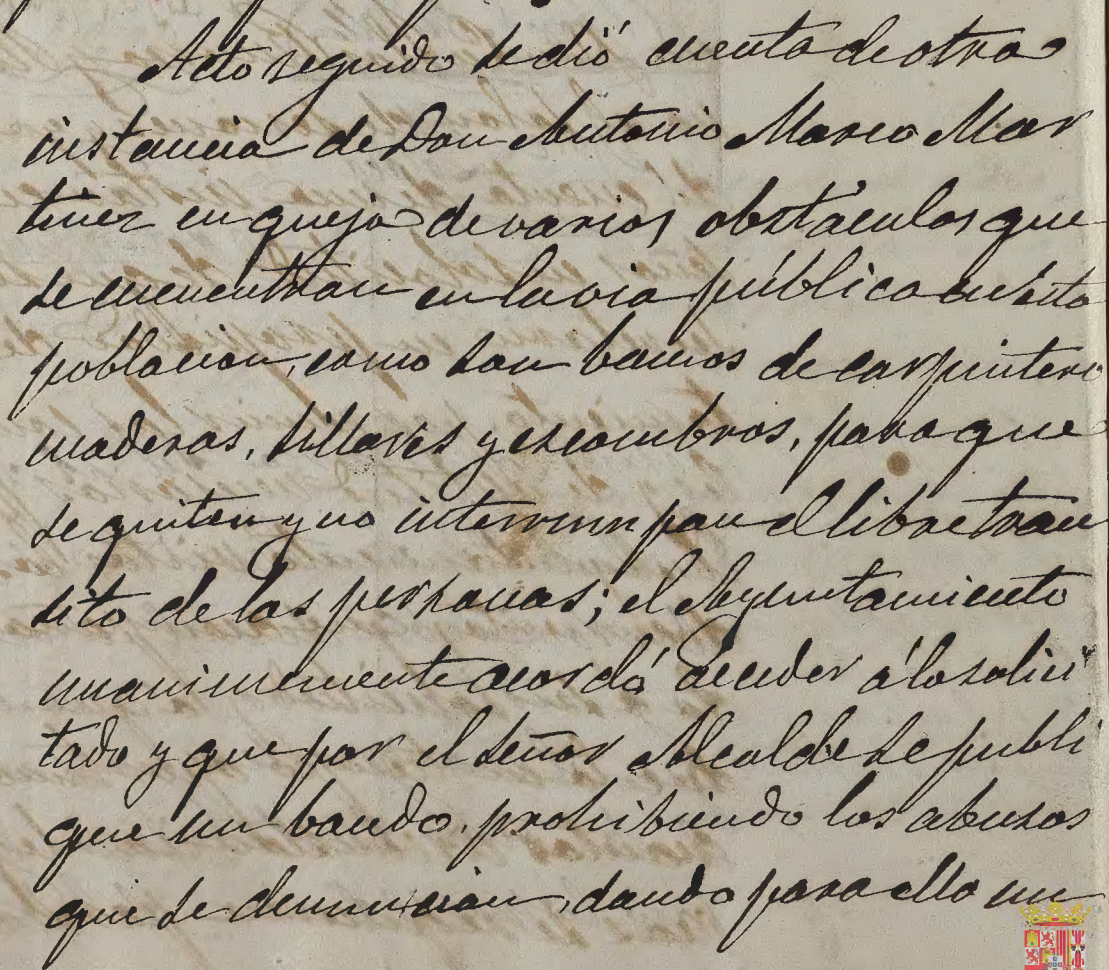 Acto seguido se dió cuenta de otra
instancia de Don Antonio Marco Mar
tinez en queja de varios obstáculos que
se encuentran en la via pública en esta
poblacion, como son bancos de carpintero
maderas, sillares y escombros, para que
se quiten y no interrumpan el libre tran
sito de las personas; el Ayuntamiento
unanimemente acordó acceder á lo solici
tado y que por el señor Alcalde se publi
que un bando, prohibiendo los abusos
que se denuncian, dando para ello un